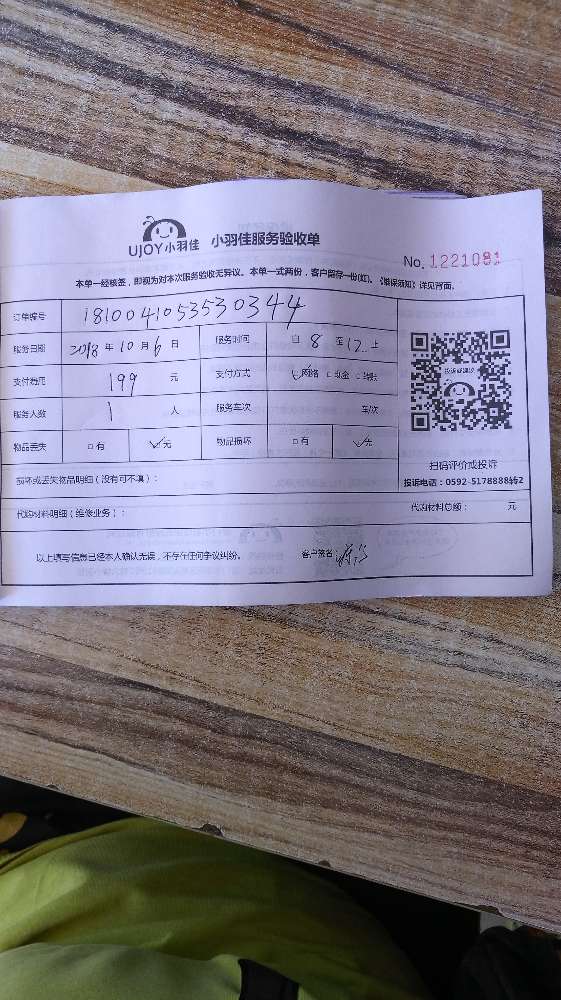 UJOY小羽佳 小羽佳服务验收单
No. 1221081
本单一经核签，即视为对本次服务验收无异议。本单一式两份，客户留存一份(红)。《维保须知》详见背面。
订单编号 181004105353 0344
服务日期 2018 年 10 月 6 日 服务时间 自 8 至 12 止
支付费用 199 元 支付方式 ☑网络 □现金 □转账
服务人数 1 人 服务车次 车/次
物品丢失 □有 ☑无 物品损坏 □有 ☑无
投诉或建议
扫码评价或投诉
投诉电话：0592-5178888转2
损坏或丢失物品明细（没有可不填）：
代购材料明细（维修业务）： 代购材料总额： 元
以上填写信息已经本人确认无误，不存在任何争议纠纷。 客户签名：